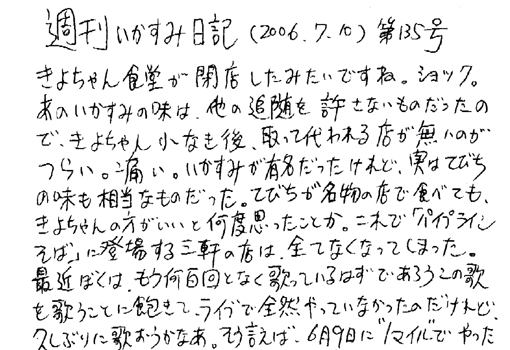 週刊いかすみ日記 (2006.7.10) 第135号
きよちゃん食堂が閉店したみたいですね。ショック。
あのいかすみの味は、他の追随を許さないものだったの
で、きよちゃん亡き後、取って代われる店が無いのが
つらい。痛い。いかすみが有名だったけれど、実はてびち
の味も相当なものだった。てびちが名物の店で食べても、
きよちゃんの方がいいと何度思ったことか。これで「パイプライン
そば」に登場する三軒の店は、全てなくなってしまった。
最近ぼくは、もう何百回となく歌っているはずであろうこの歌
を歌うことに飽きて、ライブで全然やっていなかったのだけれど、
久しぶりに歌おうかなあ。そう言えば、6月9日に"ノマイル"でやった